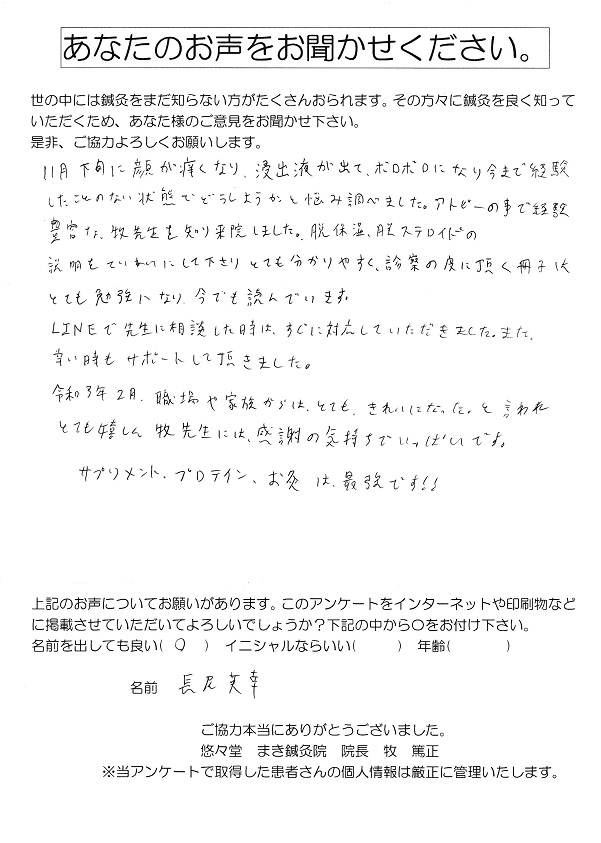 あなたのお声をお聞かせください。
世の中には鍼灸をまだ知らない方がたくさんおられます。その方々に鍼灸を良く知って
いただくため、あなた様のご意見をお聞かせ下さい。
是非、ご協力よろしくお願いします。
11月下旬に顔が痒くなり、浸出液が出て、ボロボロになり今まで経験
したことのない状態でどうしようかと悩み調べました。アトピーの事で経験
豊富な、牧先生を知り来院しました。脱保湿、脱ステロイドの
説明をていねいにして下さりとても分かりやすく、診察の度に頂く冊子は
とても勉強になり、今でも読んでいます。
LINEで先生に相談した時は、すぐに対応していただきました。また、
辛い時もサポートして頂きました。
令和3年2月、職場や家族からは、とても、きれいになった。と言われ
とても嬉しく牧先生には、感謝の気持ちでいっぱいです。
サプリメント・プロテイン、お灸は、最強です!!
上記のお声についてお願いがあります。このアンケートをインターネットや印刷物など
に掲載させていただいてよろしいでしょうか?下記の中から〇をお付け下さい。
名前を出しても良い( 〇 ) イニシャルならいい( ) 年齢( )
名前 長尾美幸
ご協力本当にありがとうございました。
悠々堂 まき鍼灸院 院長 牧 篤正
※当アンケートで取得した患者さんの個人情報は厳正に管理いたします。